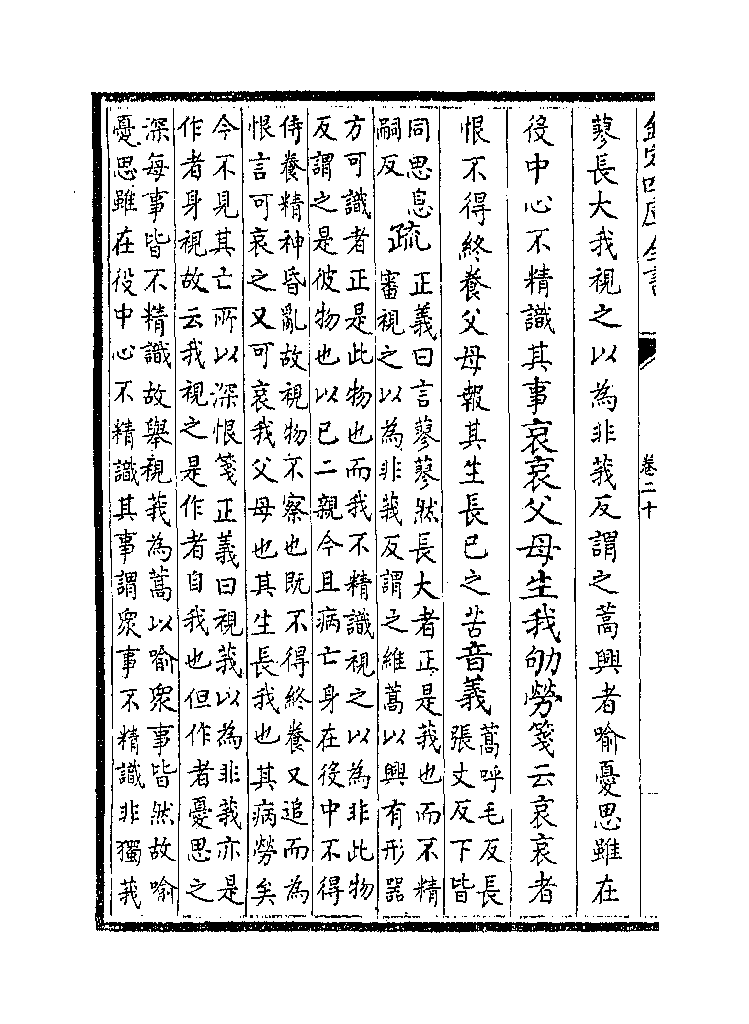 欽定四庫全書
卷二十
蓼長大我視之以為非莪反謂之蒿興者喻憂思雖在
役中心不精識其事哀哀父母生我劬勞箋云哀哀者
恨不得終養父母報其生長已之苦音義蒿呼毛反長
張丈反下皆
同思息
嗣反疏正義曰言蓼蓼然長大者正是莪也而不精
審視之以為非莪反謂之維蒿以興有形器
方可識者正是此物也而我不精識視之以為非此物
反謂之是彼物也以已二親今且病亡身在役中不得
侍養精神昏亂故視物不察也既不得終養又追而為
恨言可哀之又可哀我父母也其生長我也其病勞矣
今不見其亡所以深恨箋正義曰視莪以為非莪亦是
作者身視故云我視之是作者自我也但作者憂思之
深每事皆不精識故舉視莪為蒿以喻眾事皆然故喻
憂思雖在役中心不精識其事謂眾事不精識非獨莪